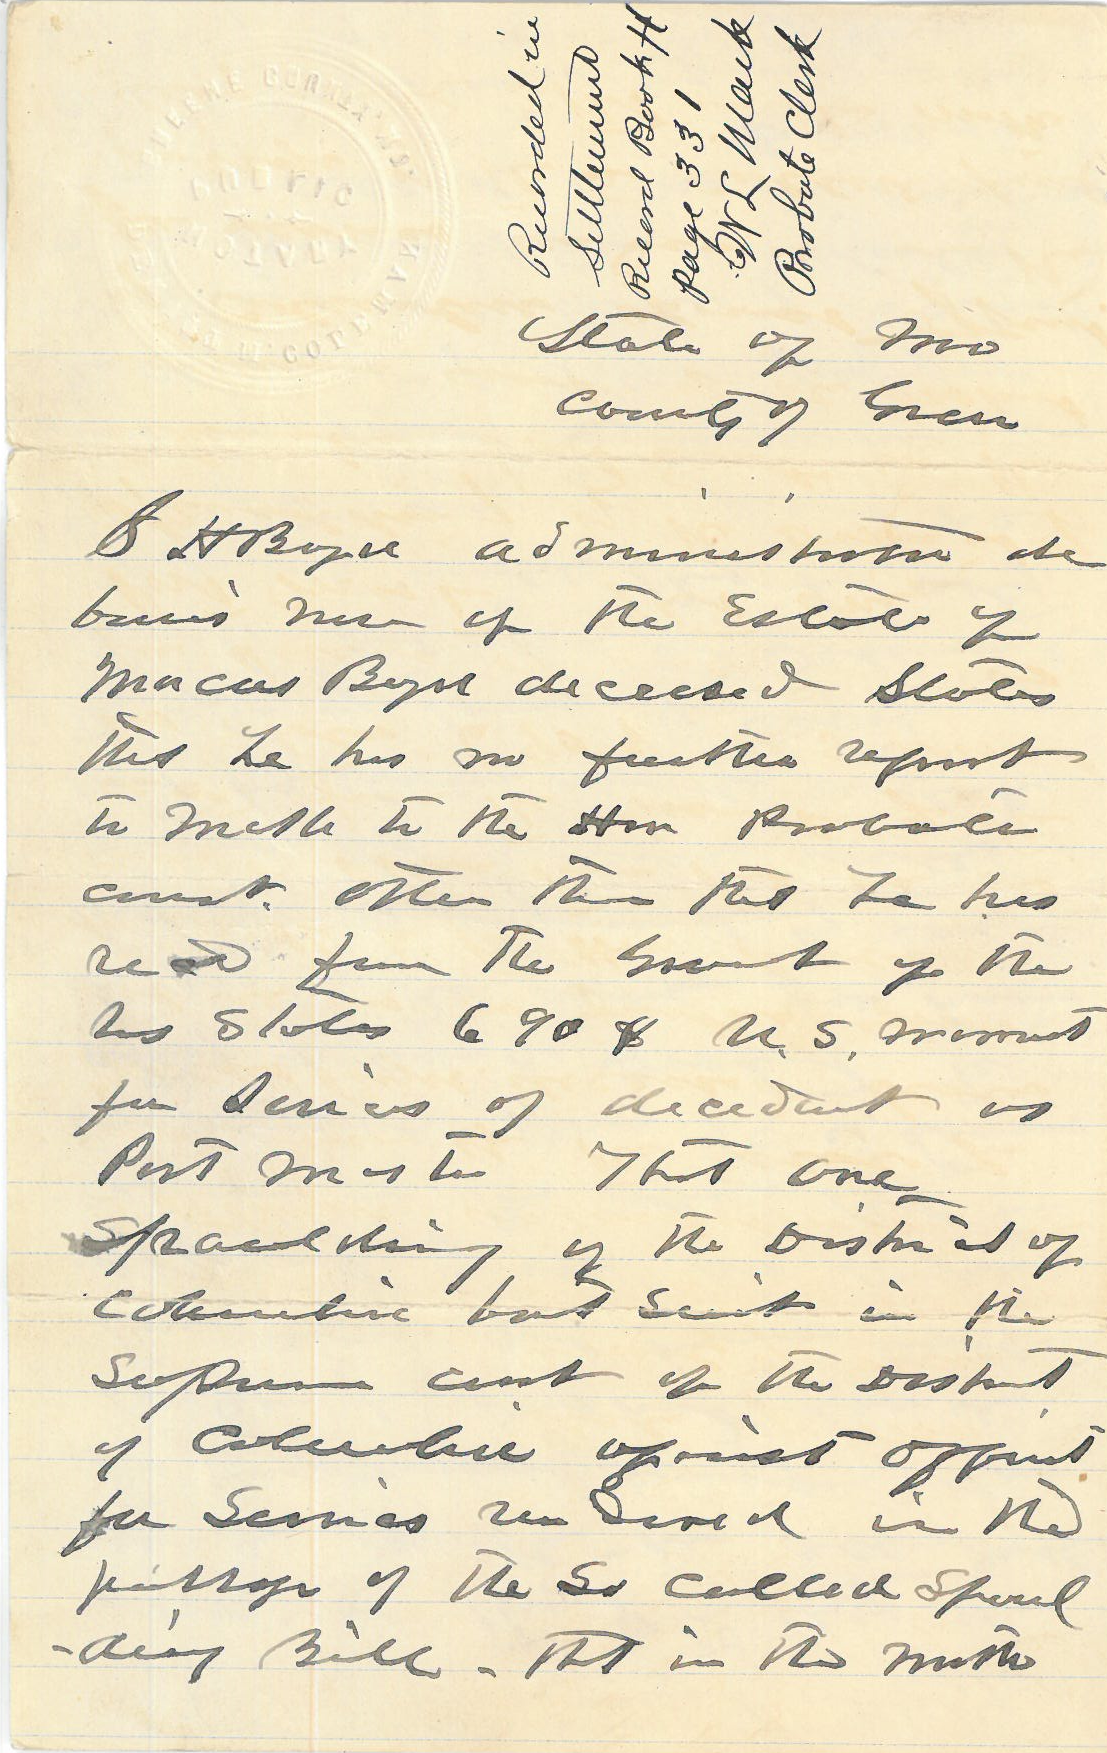 Recorded in
Settlement
Record Book H
page 331
Probate Clerk
State of Mo
County of Green
S H Boyd administrator de
bonis non of the Estate of
Marcus Boyd deceased States
that he has no further report
to make to the Hon Probate
court. other than that he has
recd from the Govmt of the
States 690 $ U. S. warrant
for Services of decedant as
Post Master That one
Spraulding of the District of
Columbia bot Suit in the
Supreme court of the District
of Columbia against affiant
for Services rendered in the
passage of the So called Spaul
-ding Bill - that in the